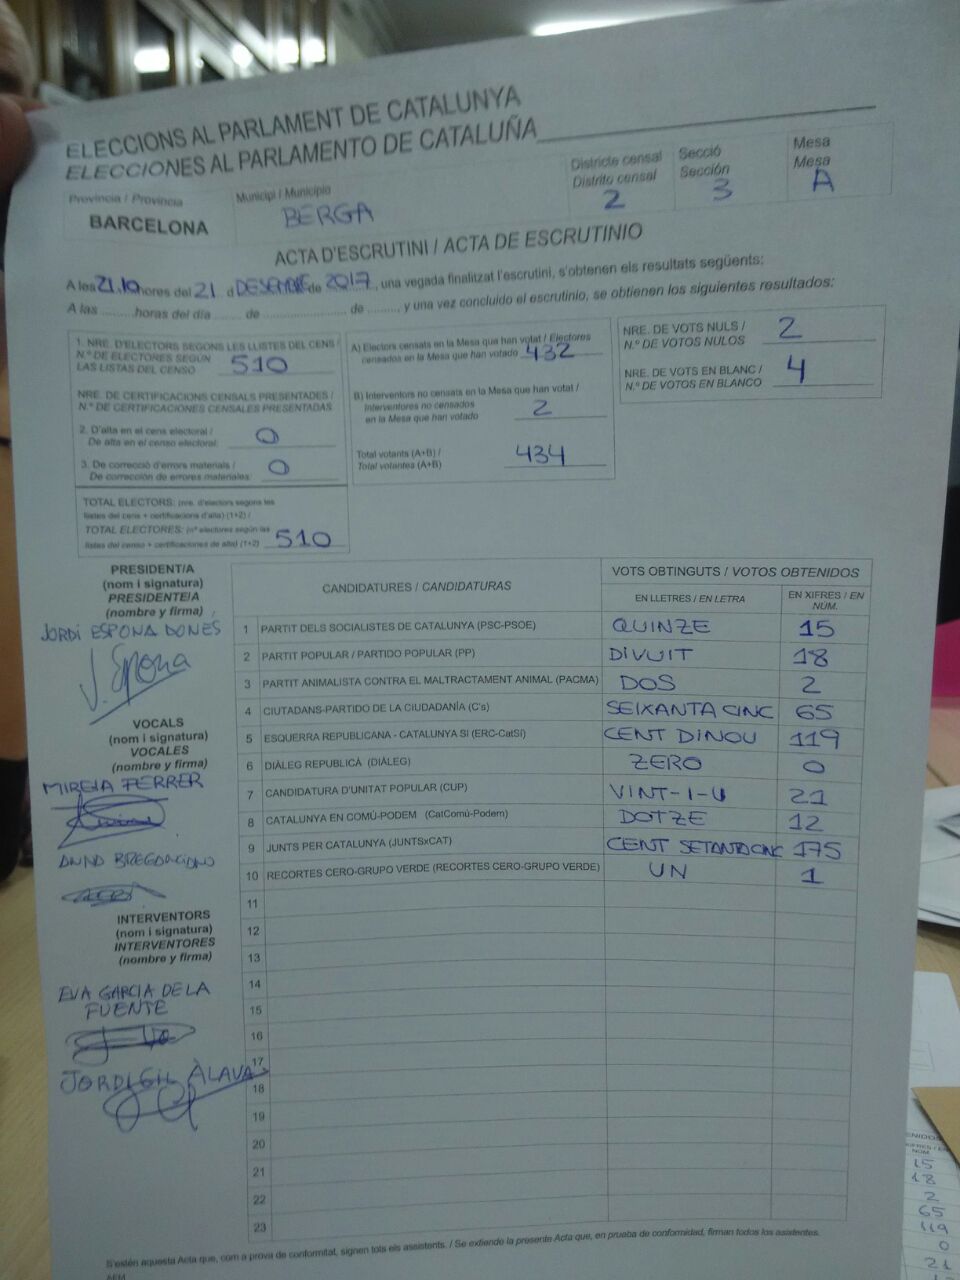 ELECCIONS AL PARLAMENT DE CATALUNYA
ELECCIONES AL PARLAMENTO DE CATALUÑA
Província / Provincia
BARCELONA
Municipi / Municipio
BERGA
Districte censal
Distrito censal
2
Secció
Sección
3
Mesa
Mesa
A
ACTA D'ESCRUTINI / ACTA DE ESCRUTINIO
A les 21.10 hores del 21 d DESEMBRE de 2017, una vegada finalitzat l'escrutini, s'obtenen els resultats següents:
A las ......... horas del día ....... de ........................ de ........, y una vez concluido el escrutinio, se obtienen los siguientes resultados:
1. NRE. D'ELECTORS SEGONS LES LLISTES DEL CENS /
N.º DE ELECTORES SEGÚN
LAS LISTAS DEL CENSO 510
NRE. DE CERTIFICACIONS CENSALS PRESENTADES /
N.º DE CERTIFICACIONES CENSALES PRESENTADAS
2. D'alta en el cens electoral /
De alta en el censo electoral: 0
3. De correcció d'errors materials /
De corrección de errores materiales: 0
TOTAL ELECTORS: (nre. d'electors segons les
llistes del cens + certificacions d'alta) (1+2) /
TOTAL ELECTORES: (nº electores según las
listas del censo + certificaciones de alta) (1+2) 510
A) Electors censats en la Mesa que han votat / Electores
censados en la Mesa que han votado 432
B) Interventors no censats en la Mesa que han votat /
Interventores no censados
en la Mesa que han votado 2
Total votants (A+B) /
Total votantes (A+B) 434
NRE. DE VOTS NULS /
N.º DE VOTOS NULOS 2
NRE. DE VOTS EN BLANC /
N.º DE VOTOS EN BLANCO 4
PRESIDENT/A
(nom i signatura)
PRESIDENTE/A
(nombre y firma)
JORDI ESPONA DONES
J. Espona
VOCALS
(nom i signatura)
VOCALES
(nombre y firma)
MIREIA FERRER
INTERVENTORS
(nom i signatura)
INTERVENTORES
(nombre y firma)
EVA GARCIA DE LA
FUENTE
JORDI GIL ÀLAVA
CANDIDATURES / CANDIDATURAS
VOTS OBTINGUTS / VOTOS OBTENIDOS
EN LLETRES / EN LETRA
EN XIFRES / EN
NÚM.
1 PARTIT DELS SOCIALISTES DE CATALUNYA (PSC-PSOE) QUINZE 15
2 PARTIT POPULAR / PARTIDO POPULAR (PP) DIVUIT 18
3 PARTIT ANIMALISTA CONTRA EL MALTRACTAMENT ANIMAL (PACMA) DOS 2
4 CIUTADANS-PARTIDO DE LA CIUDADANÍA (C's) SEIXANTA CINC 65
5 ESQUERRA REPUBLICANA - CATALUNYA SÍ (ERC-CatSí) CENT DINOU 119
6 DIÀLEG REPUBLICÀ (DIÀLEG) ZERO 0
7 CANDIDATURA D'UNITAT POPULAR (CUP) VINT-I-U 21
8 CATALUNYA EN COMÚ-PODEM (CatComú-Podem) DOTZE 12
9 JUNTS PER CATALUNYA (JUNTSxCAT) CENT SETANTA CINC 175
10 RECORTES CERO-GRUPO VERDE (RECORTES CERO-GRUPO VERDE) UN 1
11
12
13
14
15
16
17
18
19
20
21
22
23
S'estén aquesta Acta que, com a prova de conformitat, signen tots els assistents. / Se extiende la presente Acta que, en prueba de conformidad, firman todos los asistentes.
15
18
2
65
119
0
21